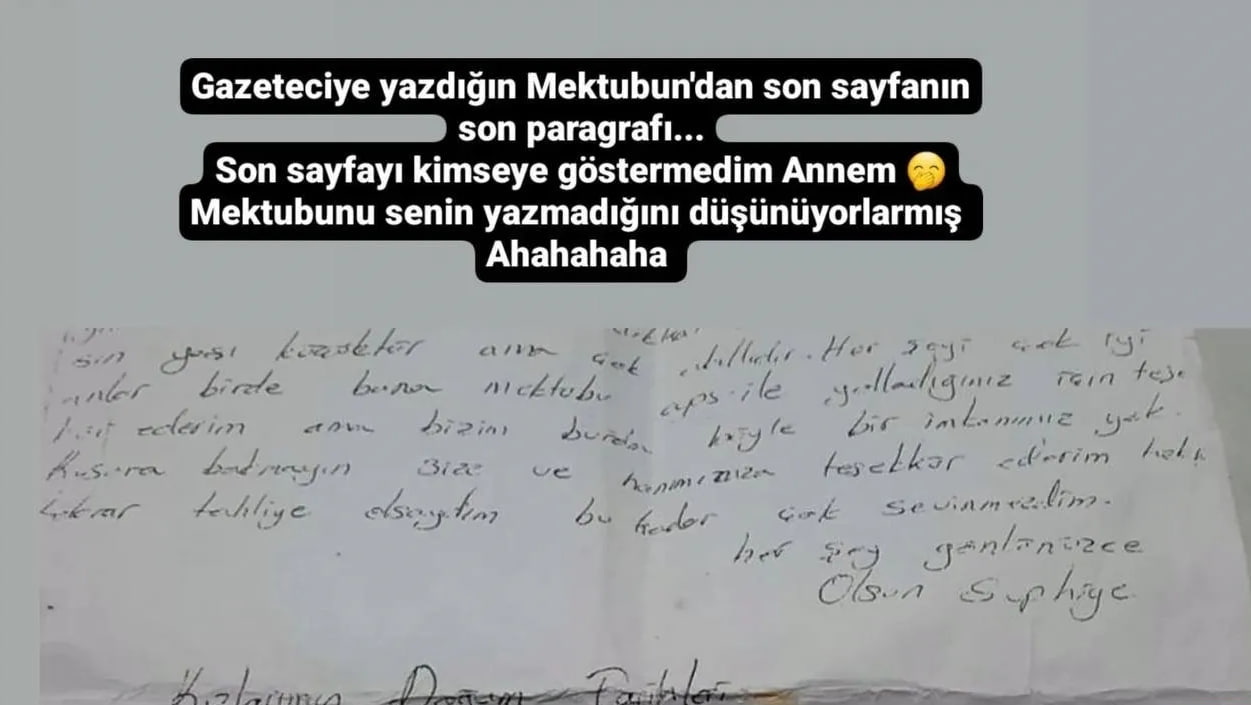 Gazeteciye yazdığın Mektubun'dan son sayfanın
son paragrafı...
Son sayfayı kimseye göstermedim Annem 🤭
Mektubunu senin yazmadığını düşünüyorlarmış
Ahahahaha
yaşı küçüktür ama çok akıllıdır. Her şeyi çok iyi
anlar birde bana mektubu aps ile yolladığınız için teşe
ederim ama bizim burda böyle bir imkanımız yok.
Kusura bakmayın size ve hanımınıza teşekkür ederim
tekrar tahliye olsaydım bu kadar çok sevinmezdim.
her şey gönlünüzce
Olsun Suphiye
Kızlarımın Doğum Tarihleri